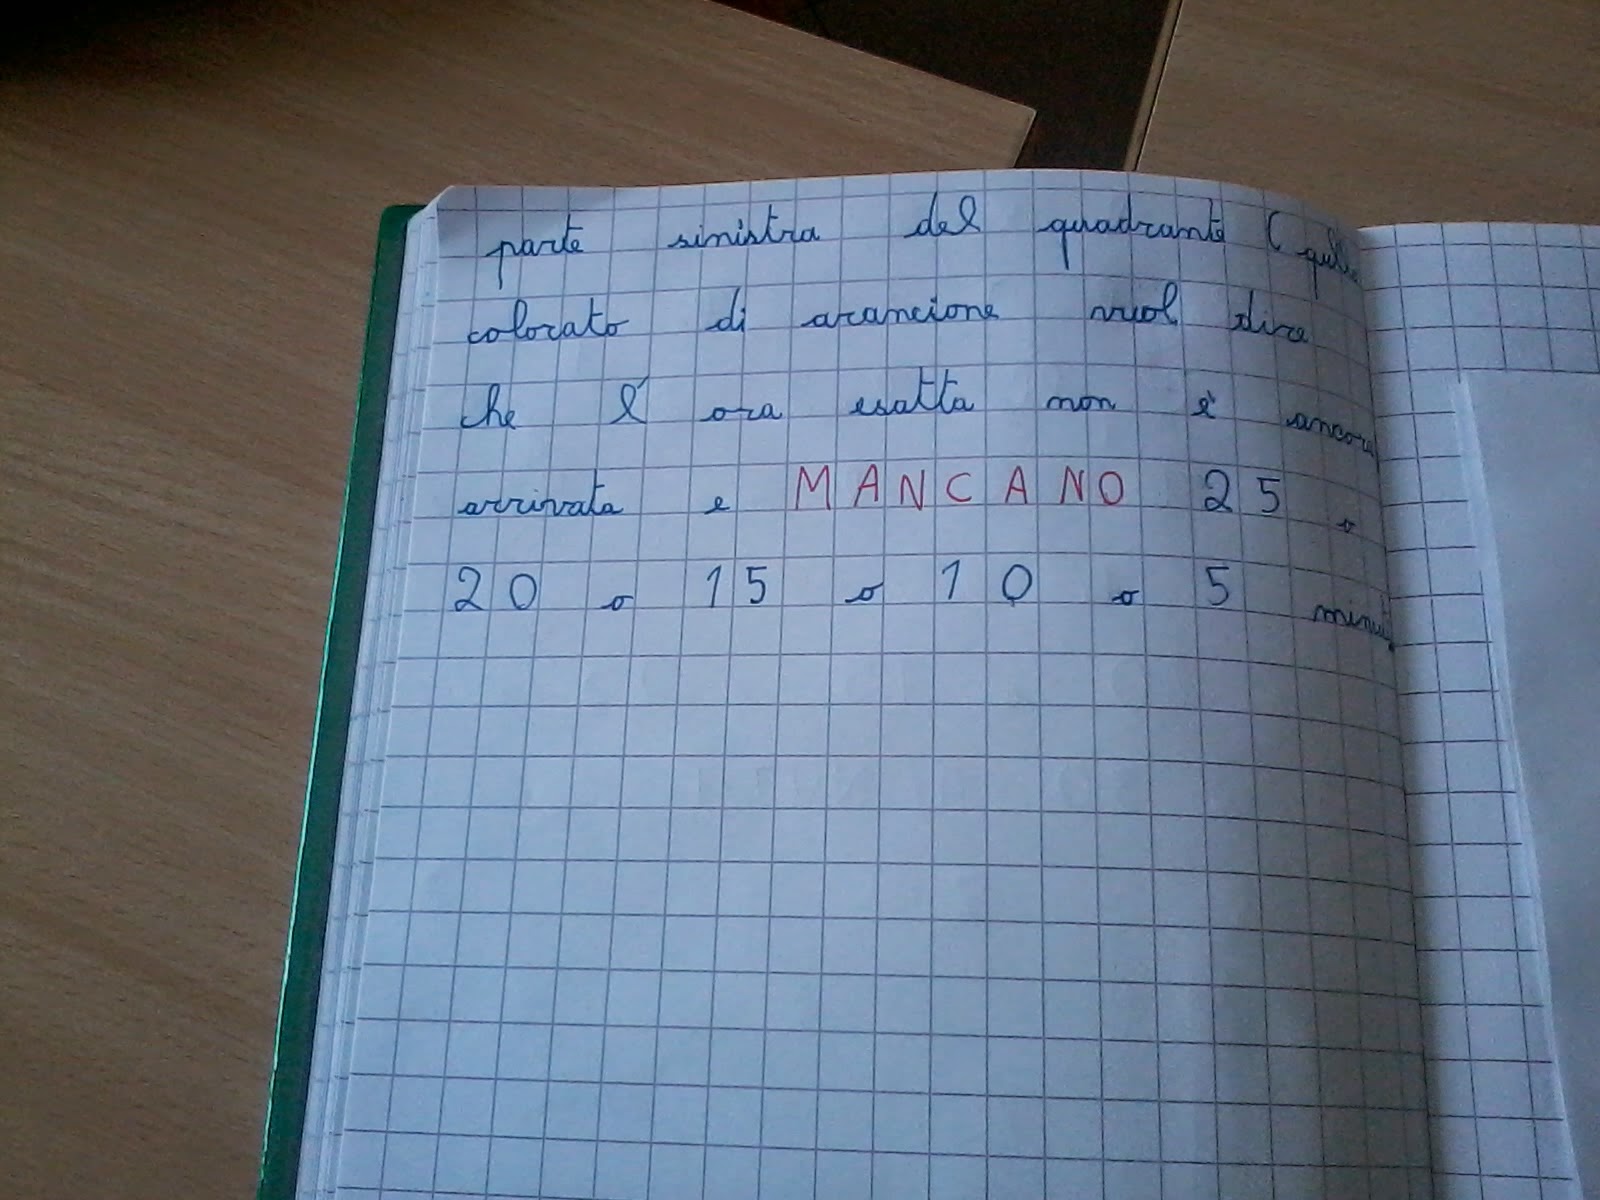 parte sinistra del quadrante (
colorato di arancione vuol dire
che l' ora esatta non è ancora
arrivata e MANCANO 25 o
20 o 15 o 10 o 5